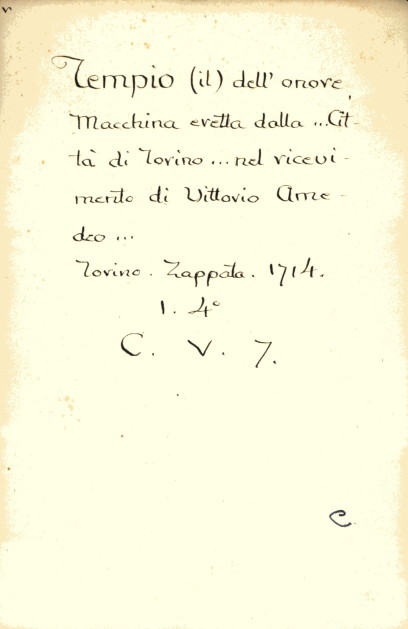 Tempio (il) dell' onore,
Macchina eretta dalla ... Cit-
tà di Torino ... nel ricevi-
mento di Vittorio Ame-
deo ...
Torino. Zappata. 1714.
1. 4°
C. V. 7.
C